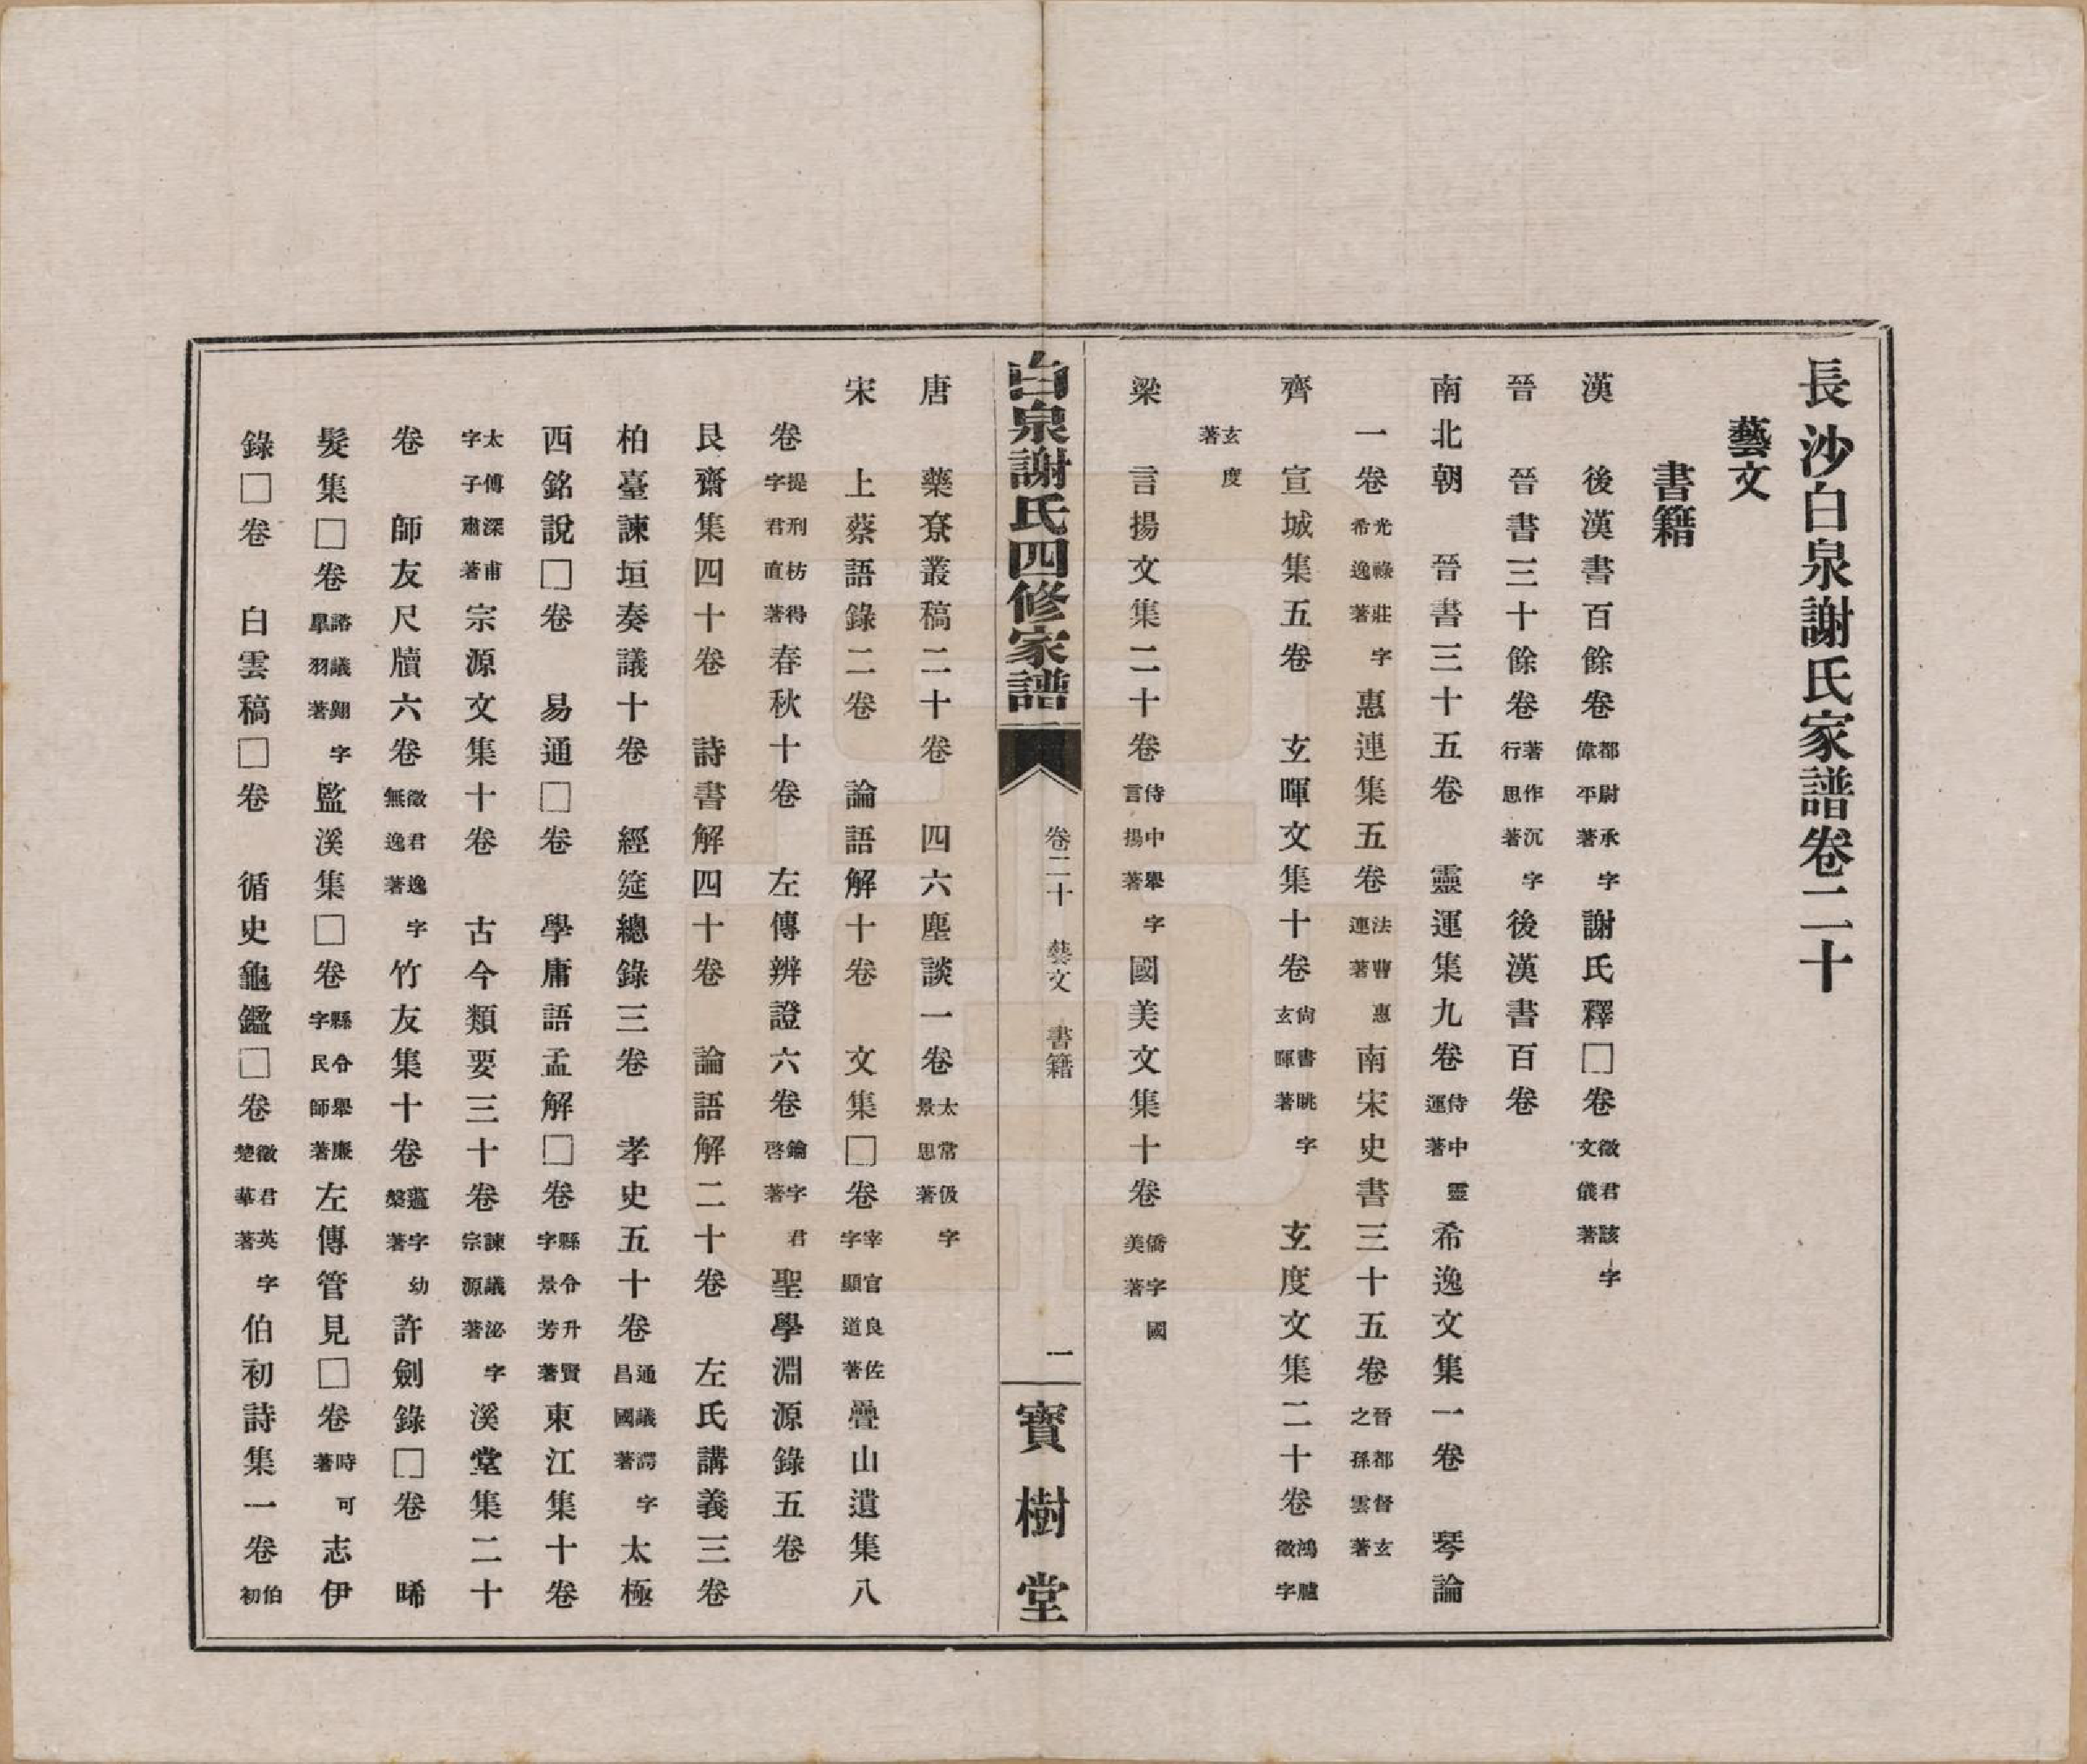 長沙白泉謝氏家譜卷二十
藝文
書籍
漢　後漢書百餘卷都尉承字偉平著謝氏釋□卷徵君該字文儀著
晉　晉書三十餘卷著作沉字行思著後漢書百卷
南北朝　晉書三十五卷　靈運集九卷侍中靈運著希逸文集一卷　琴論
一卷光祿莊字希逸著惠連集五卷法曹惠連著南宋史書三十五卷晉都督玄之孫雲著
齊　宣城集五卷　玄暉文集十卷尚書眺字玄暉著　玄度文集二十卷鴻臚徵字
玄度著
梁　言揚文集二十卷侍中舉字言揚著國美文集十卷僑字國美著
白泉謝氏四修家譜　卷二十　藝文　書籍　一　寶樹堂
唐　藥寮叢稿二十卷　四六塵談一卷太常伋字景思著
宋　上蔡語錄二卷　論語解十卷　文集□卷宰官良佐字顯道著疊山遺集八
卷提刑枋得字君直著春秋十卷　左傳辨證六卷鑰字君啓著聖學淵源錄五卷
艮齋集四十卷　詩書解四十卷　論語解二十卷　左氏講義三卷
柏臺諫垣奏議十卷　經筵總錄三卷　孝史五十卷通議諤字昌國著太極
西銘說□卷　易通□卷　學庸語孟解□卷縣令升賢字景芳著東江集十卷
太傅深甫字子肅著宗源文集十卷　古今類要三十卷諫議泌字宗源著溪堂集二十
卷　師友尺牘六卷徵君逸字無逸著竹友集十卷薖字幼槃著許劍錄□卷　晞
髮集□卷諮議翱字臯羽著監溪集□卷縣令舉廉字民師著左傳管見□卷時可著志伊
錄□卷　白雲稿□卷　循史龜鑑□卷徵君英字楚華著伯初詩集一卷伯初